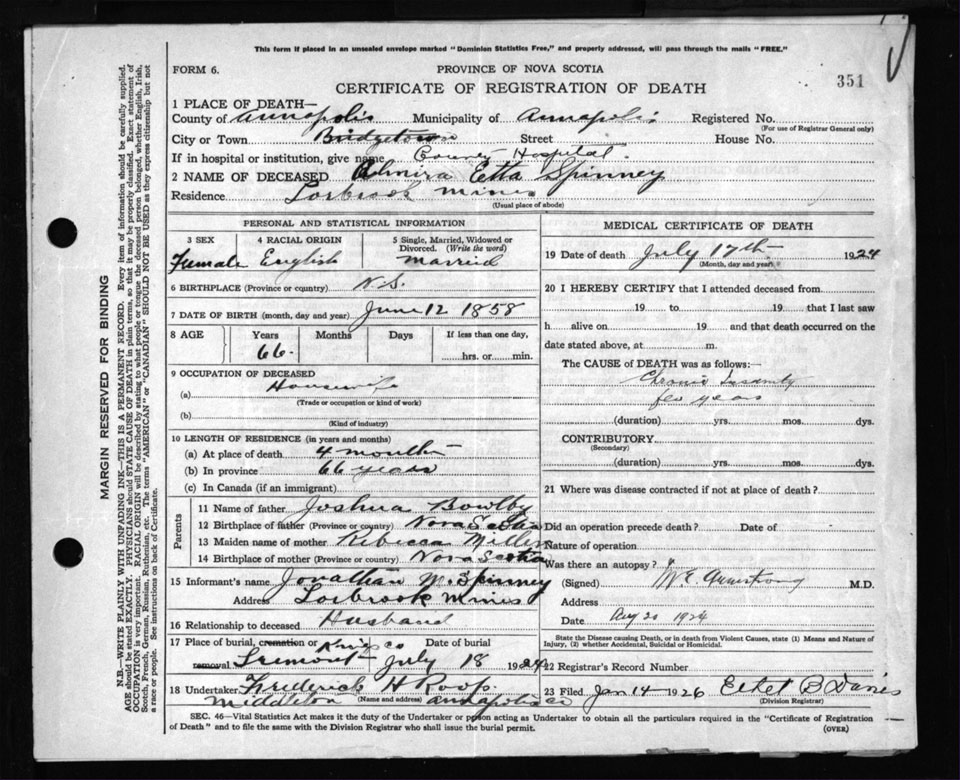 This form if placed in an unsealed envelope marked "Dominion Statistics Free," and properly addressed, will pass through the mails "FREE."
FORM 6.
PROVINCE OF NOVA SCOTIA
351
CERTIFICATE OF REGISTRATION OF DEATH
1 PLACE OF DEATH—
County of Annapolis Municipality of Annapolis Registered No.
(For use of Registrar General only)
City or Town Bridgetown Street House No.
If in hospital or institution, give name County Hospital.
2 NAME OF DECEASED Almira Etta Spinney
Residence Torbrook Mines
(Usual place of abode)
PERSONAL AND STATISTICAL INFORMATION
3 SEX 4 RACIAL ORIGIN 5 Single, Married, Widowed or Divorced. (Write the word)
Female English Married
6 BIRTHPLACE (Province or country) N.S.
7 DATE OF BIRTH (month, day and year) June 12 1858
8 AGE Years Months Days If less than one day,
66. hrs. or min.
9 OCCUPATION OF DECEASED
(a) Housewife
(Trade or occupation or kind of work)
(b)
(Kind of industry)
10 LENGTH OF RESIDENCE (in years and months)
(a) At place of death 4 months
(b) In province 66 years
(c) In Canada (if an immigrant)
Parents
11 Name of father Joshua Bowlby
12 Birthplace of father (Province or country) Nova Scotia
13 Maiden name of mother Rebecca Miller
14 Birthplace of mother (Province or country) Nova Scotia
15 Informant's name Jonathan M. Spinney
Address Torbrook Mines
16 Relationship to deceased Husband
17 Place of burial, cremation or Kings Co Date of burial
removal Tremont July 18 1924
18 Undertaker Frederick H Roop
(Name and address)
Middleton Annapolis Co
MEDICAL CERTIFICATE OF DEATH
19 Date of death July 17th 1924
(Month, day and year)
20 I HEREBY CERTIFY that I attended deceased from
19 to 19 that I last saw
h alive on 19 and that death occurred on
date stated above, at m.
The CAUSE of DEATH was as follows:
Chronic Insanity
few years
(duration) yrs. mos. dys.
CONTRIBUTORY
(Secondary)
(duration) yrs. mos. dys.
21 Where was disease contracted if not at place of death?
Did an operation precede death? Date of
Nature of operation
Was there an autopsy?
(Signed) Armstrong M.D.
Address
Date Aug 20 1924
State the Disease causing Death, or in death from Violent Causes, state (1) Means and Nature of Injury, (2) whether Accidental, Suicidal or Homicidal.
22 Registrar's Record Number
23 Filed Jan 14 1926 Ethel B Davies
(Division Registrar)
SEC. 46—Vital Statistics Act makes it the duty of the Undertaker or person acting as Undertaker to obtain all the particulars required in the "Certificate of Registration
of Death" and to file the same with the Division Registrar who shall issue the burial permit.
(OVER)
MARGIN RESERVED FOR BINDING
N.B.—WRITE PLAINLY WITH UNFADING INK—THIS IS A PERMANENT RECORD. Every item of information should be carefully supplied.
AGE should be stated EXACTLY. PHYSICIANS should STATE CAUSE OF DEATH in plain terms, so that it may be properly classified. Exact statement of
OCCUPATION is very important. RACIAL ORIGIN will be described by stating to what people or tongue the deceased person belonged, whether English, Irish,
Scotch, French, German, Russian, Ruthenian, etc. The terms "AMERICAN" or "CANADIAN" SHOULD NOT BE USED as they express citizenship but not
a race or people. See instructions on back of Certificate.